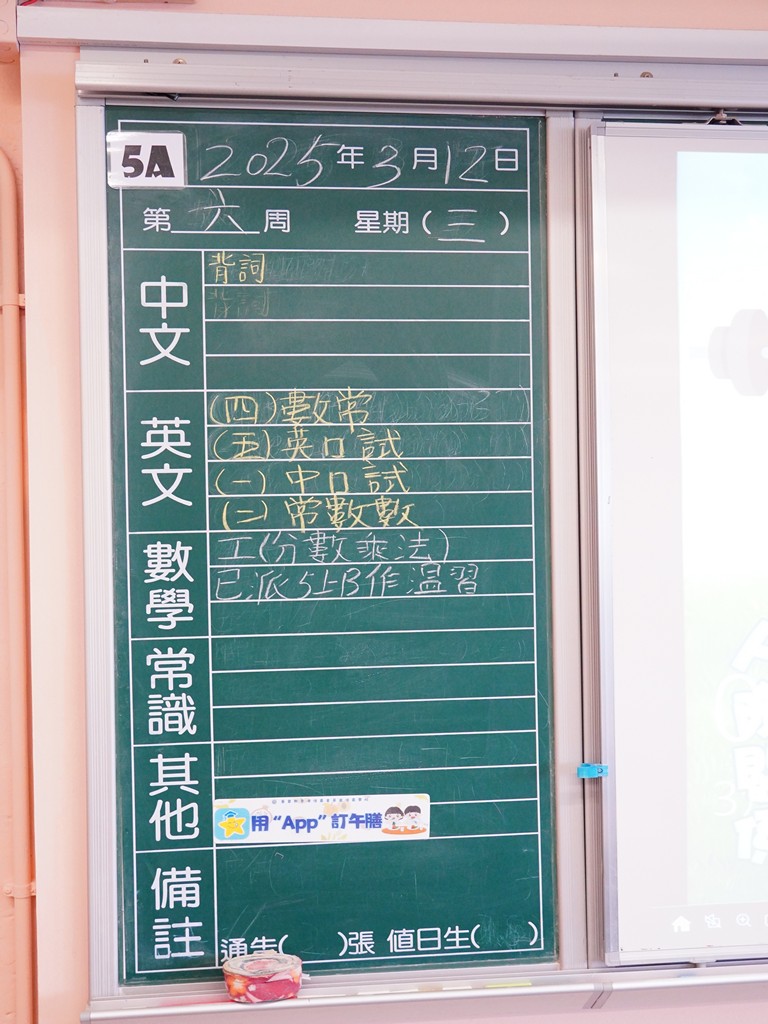 5A 2025年3月12日
第六周 星期(三)
中文
背詞
背詞
英文
(四)數常
(五)英口試
(一)中口試
(二)常數數
數學
工(分數乘法)
已派5上B作溫習
常識
其他
用“App”訂午膳
備註
通告( )張 值日生( )